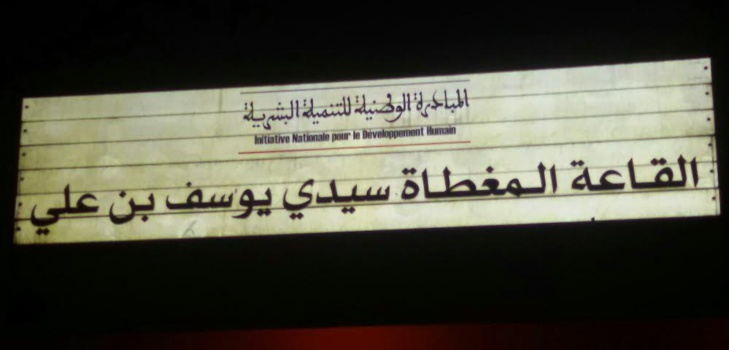 المبادرة الوطنية للتنمية البشرية
Initiative Nationale pour le Développement Humain
القاعة المغطاة سيدي يوسف بن علي